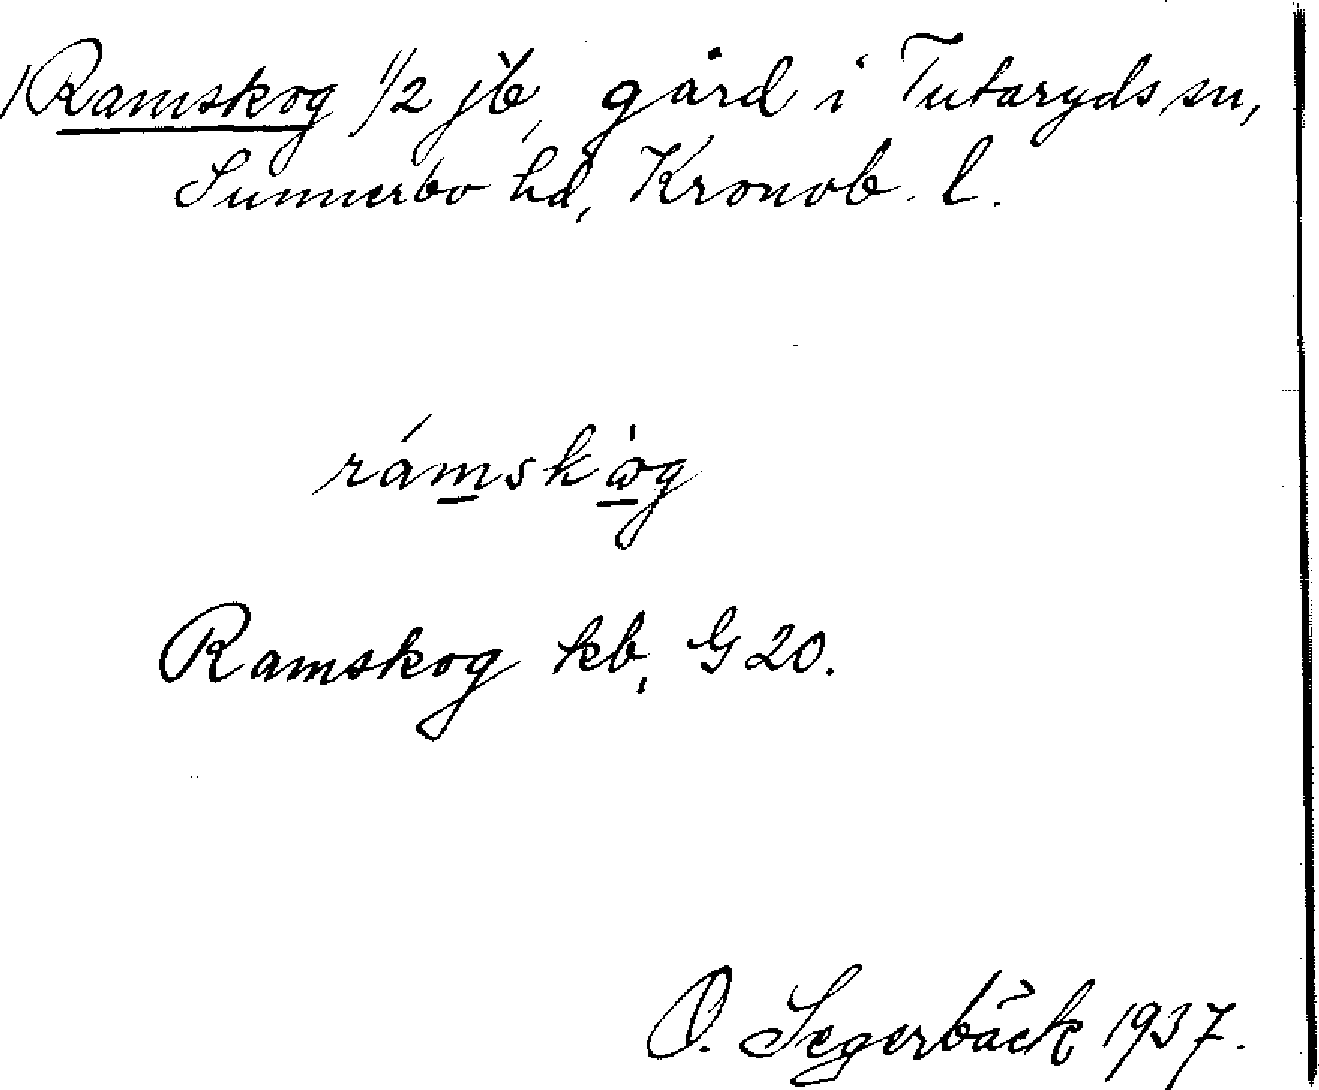 Ramskog 1/2 jb, gård i Tutaryds sn,
Sunnerbo hd, Kronob. l.
rámskòg
Ramskog kb, G 20.
O. Segerbäck 1937.